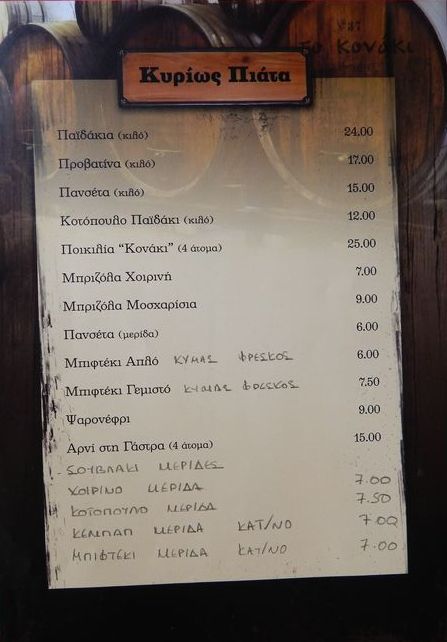 Νο 37
Το Κονάκι
Κυρίως Πιάτα
Παϊδάκια (κιλό) 24.00
Προβατίνα (κιλό) 17.00
Πανσέτα (κιλό) 15.00
Κοτόπουλο Παϊδάκι (κιλό) 12.00
Ποικιλία “Κονάκι” (4 άτομα) 25.00
Μπριζόλα Χοιρινή 7.00
Μπριζόλα Μοσχαρίσια 9.00
Πανσέτα (μερίδα) 6.00
Μπιφτέκι Απλό ΚΥΜΑΣ ΦΡΕΣΚΟΣ 6.00
Μπιφτέκι Γεμιστό ΚΥΜΑΣ ΦΡΕΣΚΟΣ 7.50
Ψαρονέφρι 9.00
Αρνί στη Γάστρα (4 άτομα) 15.00
ΣΟΥΒΛΑΚΙ ΜΕΡΙΔΕΣ
ΧΟΙΡΙΝΟ ΜΕΡΙΔΑ 7.00
ΚΟΤΟΠΟΥΛΟ ΜΕΡΙΔΑ 7.50
ΚΕΜΠΑΠ ΜΕΡΙΔΑ ΚΑΤ/ΝΟ 7.00
ΜΠΙΦΤΕΚΙ ΜΕΡΙΔΑ ΚΑΤ/ΝΟ 7.00